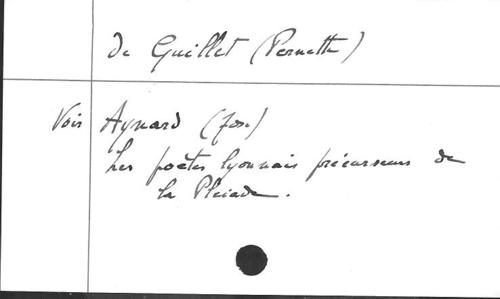 De Guillet (Pernette)
Voir Aynard (Jos.)
Les poètes lyonnais précurseurs de
la Pleiade.